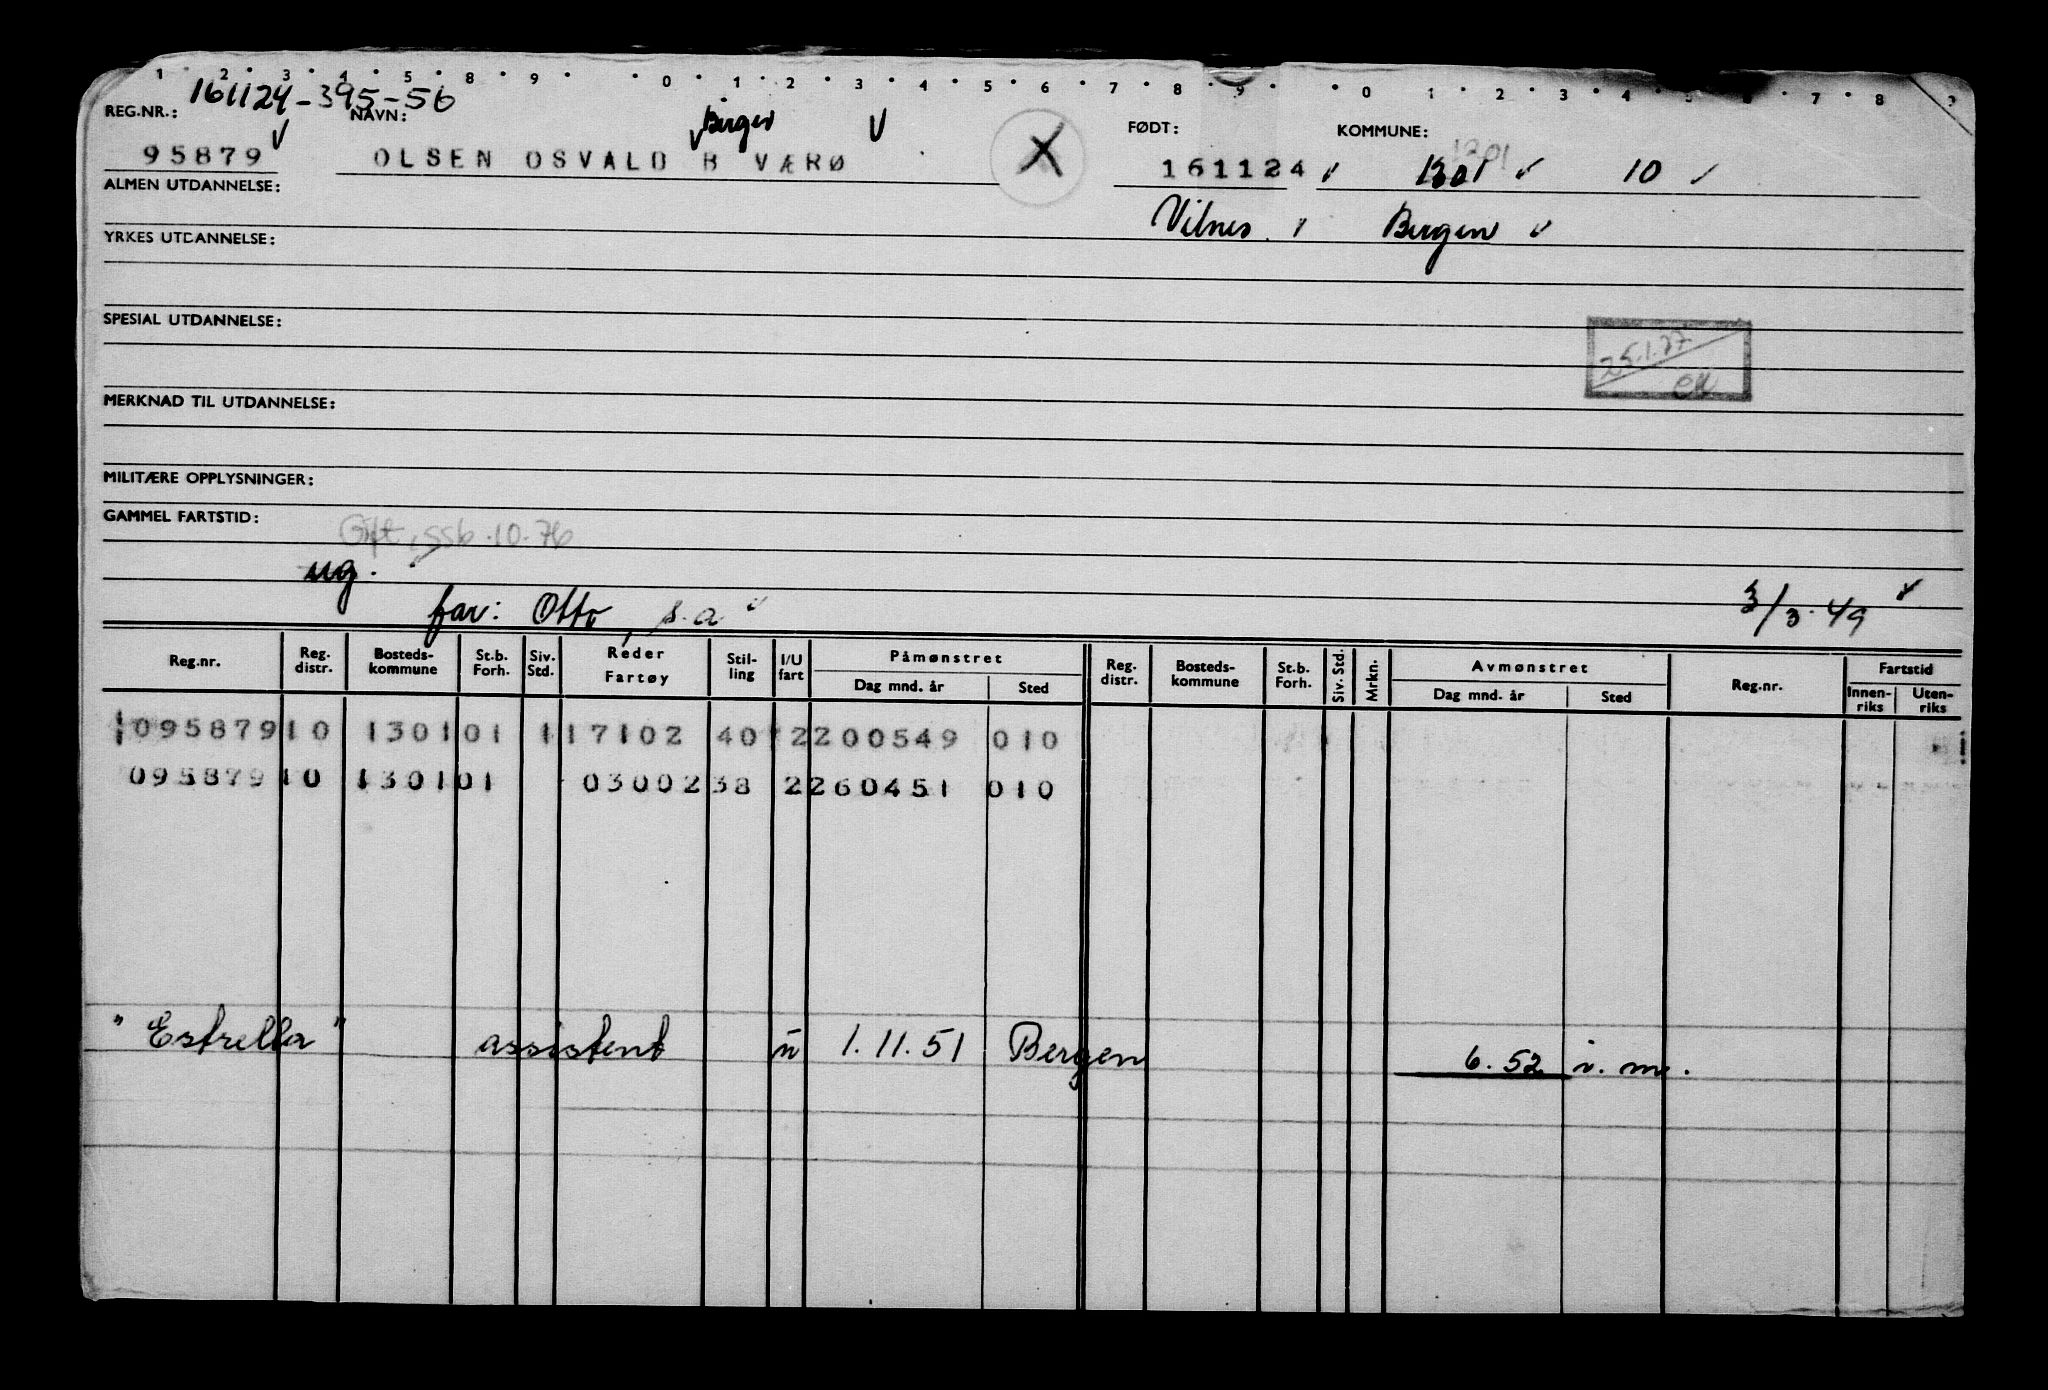 1 · 2 · 3 · 4 · 5 · 8 · 9 · · 0 · 1 · 2 · 3 · 4 · 5 · 6 · 7 · 8 · 9 · · 0 · 1 · 2 · 3 · 4 · 5 · 6 · 7 · 8 · 9
161124-395-56
REG.NR.: NAVN: Birger FØDT: KOMMUNE: 1201
95879 OLSEN OSVALD B VÆRØ X 161124 1301 10
ALMEN UTDANNELSE:
Vilnes Bergen
YRKES UTDANNELSE:
SPESIAL UTDANNELSE:
25.1.77
MERKNAD TIL UTDANNELSE:
MILITÆRE OPPLYSNINGER:
GAMMEL FARTSTID:
Gift, SSB.10.76
ug.
far: Otto, s.a 3/3.49
Reg.nr. Reg. distr. Bosteds-kommune St.b. Forh. Siv. Std. Reder Fartøy Stil-ling I/U fart Påmønstret Dag mnd. år Sted Reg. distr. Bosteds-kommune St.b. Forh. Siv. Std. Mrkn. Avmønstret Dag mnd. år Sted Reg.nr. Fartstid Innen-riks Uten-riks
095879 10 1301 01 1 17102 40 2 200549 010
095879 10 1301 01 03002 38 2 260451 010
"Estrella" assistent u 1.11.51 Bergen 6.52 i. m.